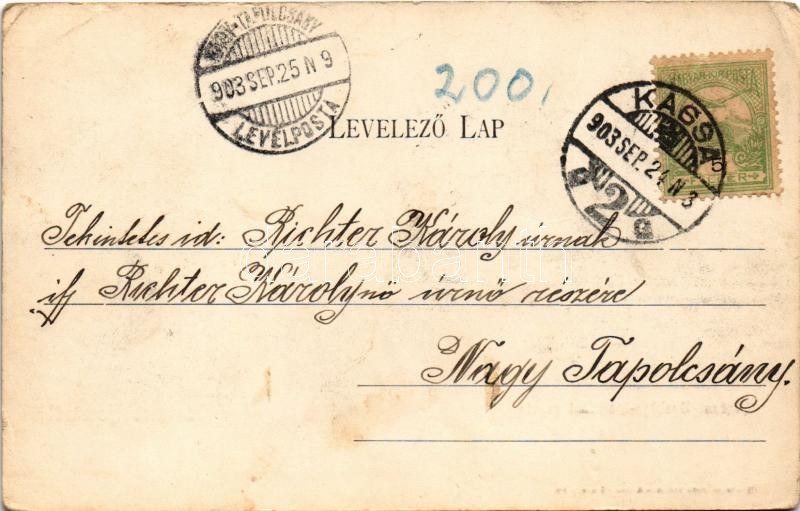 NAGY-TAPOLCSÁNY
903 SEP. 25 N 9
LEVÉLPOSTA
200
LEVELEZŐ LAP
MAGYAR KIR. POSTA
5
FILLÉR
KASSA
903 SEP. 24 N 3
2
Tekintetes id: Richter Károly úrnak
ifj Richter Károlynö úrnő részére
Nagy Tapolcsány.